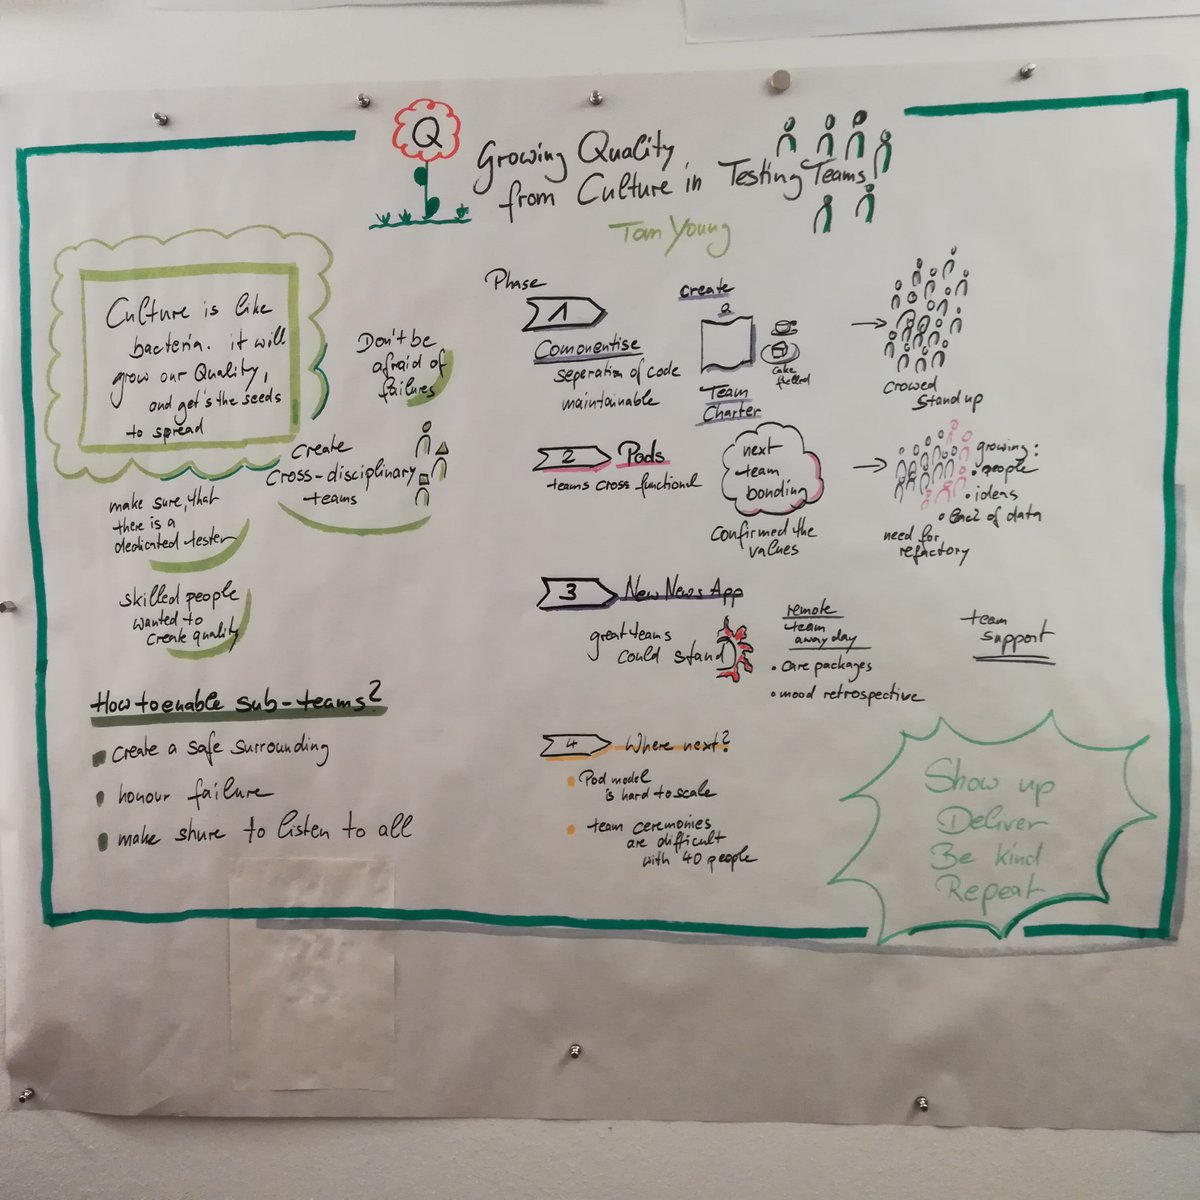 Q
Growing Quality
from Culture in Testing Teams
Tom Young
Culture is like
bacteria. it will
grow our Quality,
and get's the seeds
to spread
Don't be
afraid of
failures
create
cross-disciplinary
teams
make sure, that
there is a
dedicated tester
skilled people
wanted to
create quality
How to enable sub-teams?
create a safe surrounding
honour failure
make shure to listen to all
Phase
1
Comonentise
seperation of code
maintainable
create
Team
Charter
cake
fuelled
crowed
Stand up
2 Pods
teams cross functional
next
team
bonding
confirmed the
values
growing:
• people
• ideas
• lack of data
need for
refactory
3 New News App
great teams
could stand
remote
team
away day
• care packages
• mood retrospective
team
support
4 Where next?
Pod model
is hard to scale
team ceremonies
are difficult
with 40 people
Show up
Deliver
Be kind
Repeat